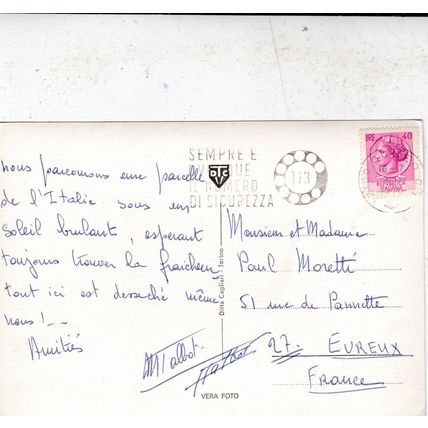 nous parcourons une parcelle
de l'Italie sous un
soleil brulant, espérant
toujours trouver la fraicheur
tout ici est desseché même
nous! - -
Amitiés
MTalbot
Talbot
SEMPRE E
OVUNQUE
IL NUMERO
DI SICUREZZA
113
DCV
Ditta Cagliari - Torino
LIRE 40
REPUBBLICA
ITALIANA
Monsieur et Madame
Paul Moretti
51 rue de Pannette
27. EVREUX
France
VERA FOTO